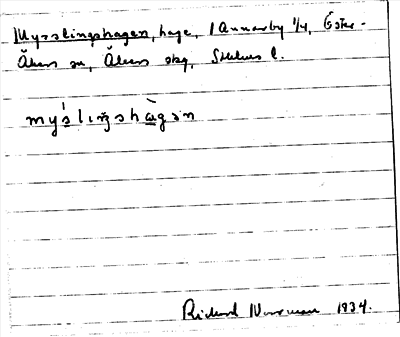 Myrslingshagen, hage, 1 Annarby 1/4, Öster-
Åkers sn, Åkers skg, Sthlms l.
mýs̀lıŋshàgən
Richard Norrman 1934.